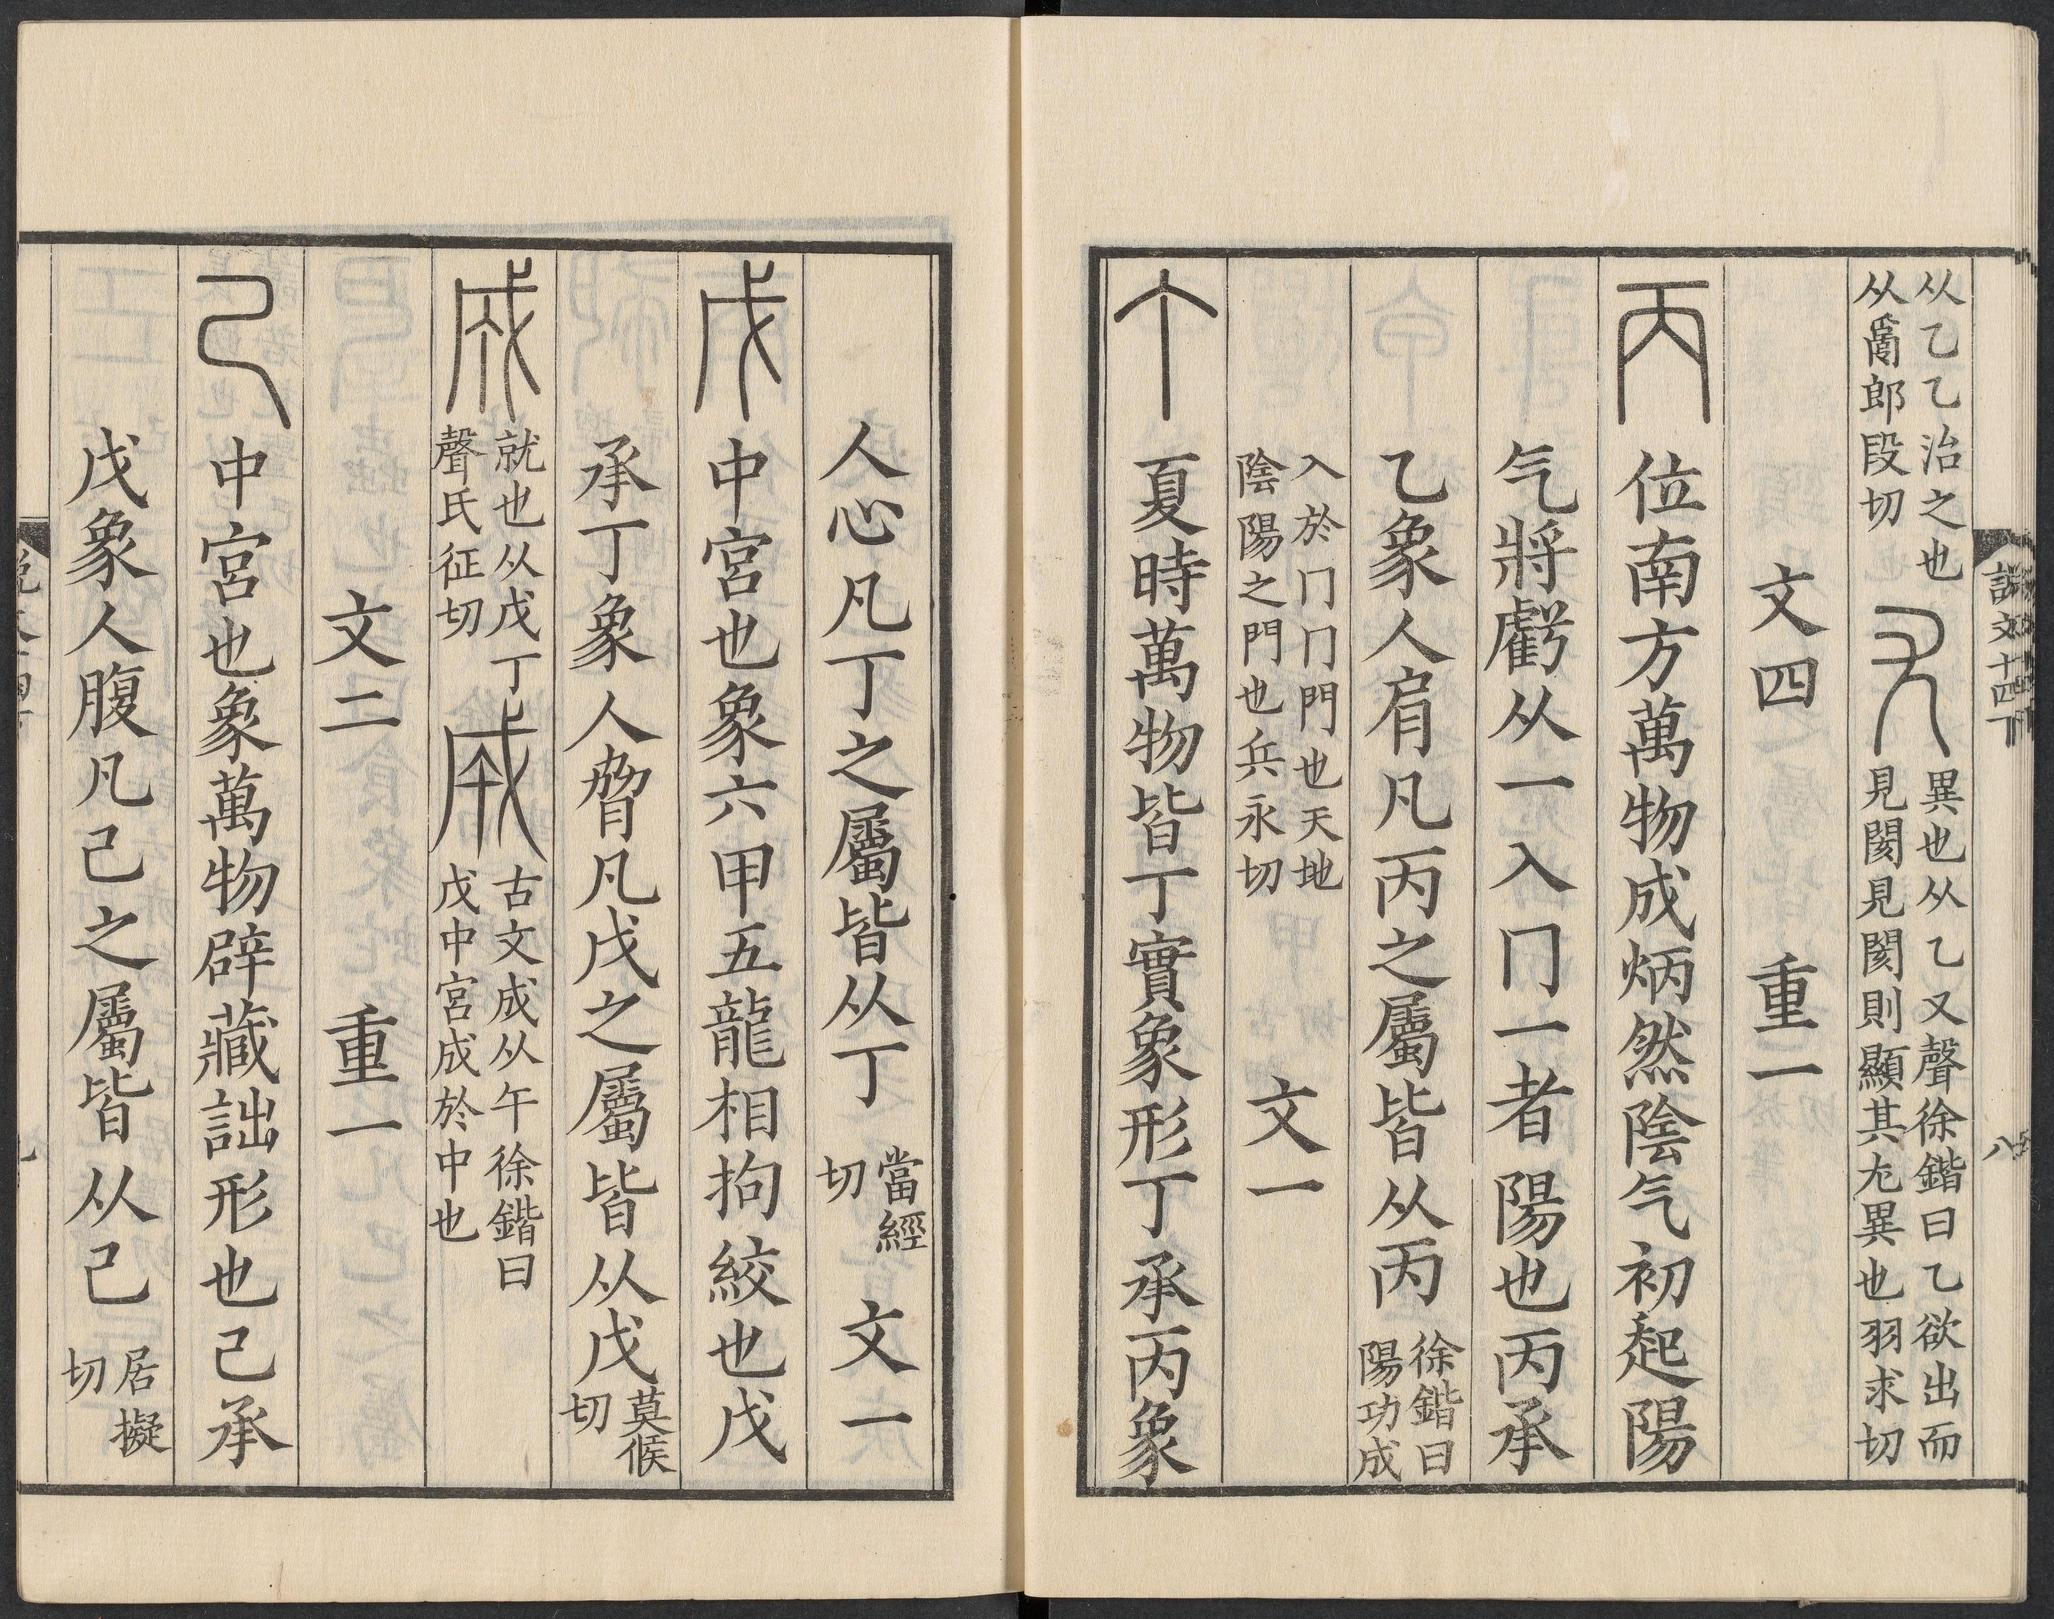 从乙乙治之也
从𤔔郎段切
尤
異也从乙又聲徐鍇曰乙欲出而
見閡見閡則顯其尤異也羽求切
文四 重一
丙 位南方萬物成炳然陰气初起陽
气將虧从一入冂一者陽也丙承
乙象人肩凡丙之屬皆从丙
徐鍇曰
陽功成
入於冂冂門也天地
陰陽之門也兵永切
文一
丁 夏時萬物皆丁實象形丁承丙象
說文十四下
八
人心凡丁之屬皆从丁
當經
切
文一
戊 中宮也象六甲五龍相拘絞也戊
承丁象人脅凡戊之屬皆从戊
莫候
切
成
就也从戊丁
聲氏征切
成
古文成从午徐鍇曰
戊中宮成於中也
文二 重一
己 中宮也象萬物辟藏詘形也己承
戊象人腹凡己之屬皆从己
居擬
切